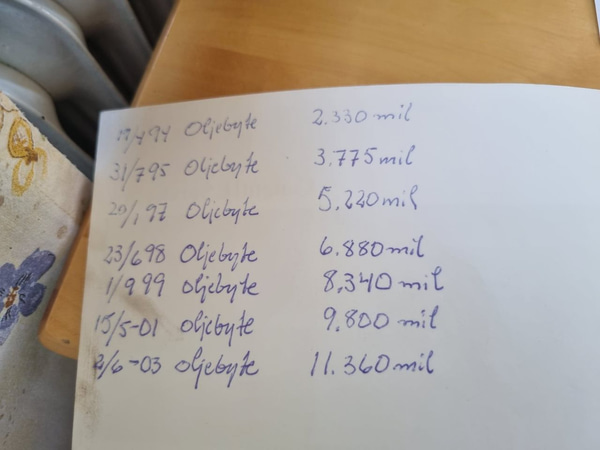 Oljebyte 2.330 mil
31/795 Oljebyte 3.775 mil
Oljebyte 5.220 mil
23/698 Oljebyte 6.880 mil
1/9 99 Oljebyte 8.340 mil
15/5-01 Oljebyte 9.800 mil
Oljebyte 11.360 mil